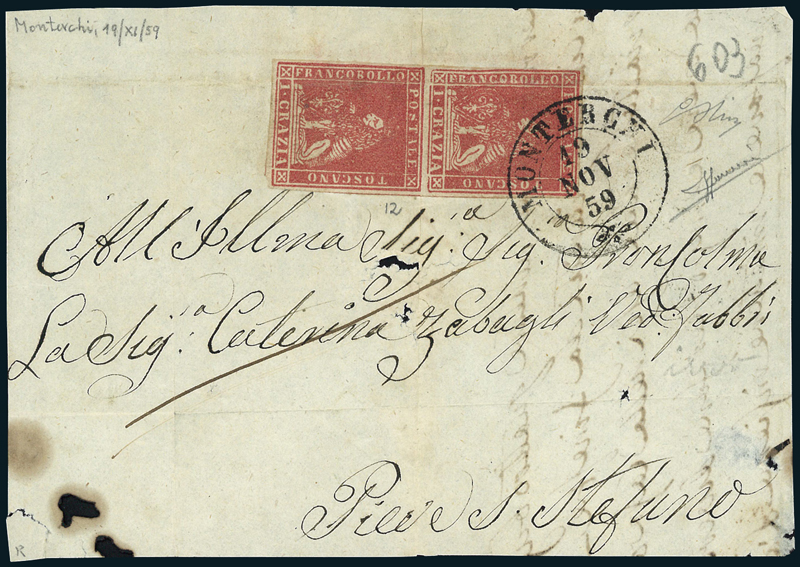 Monterchi, 19/XI/59
603
FRANCOROLLO
I·CRAZIA
POSTALE
TOSCANO
FRANCOBOLLO
I·CRAZIA
TOSCANO
MONTERCHI
19
NOV
59
12
All'Illma Sig:ra Sig: Pron Colma
La Sig:ra Caterina Zabagli Ved: Fabbri
Pieve S. Stefano
R